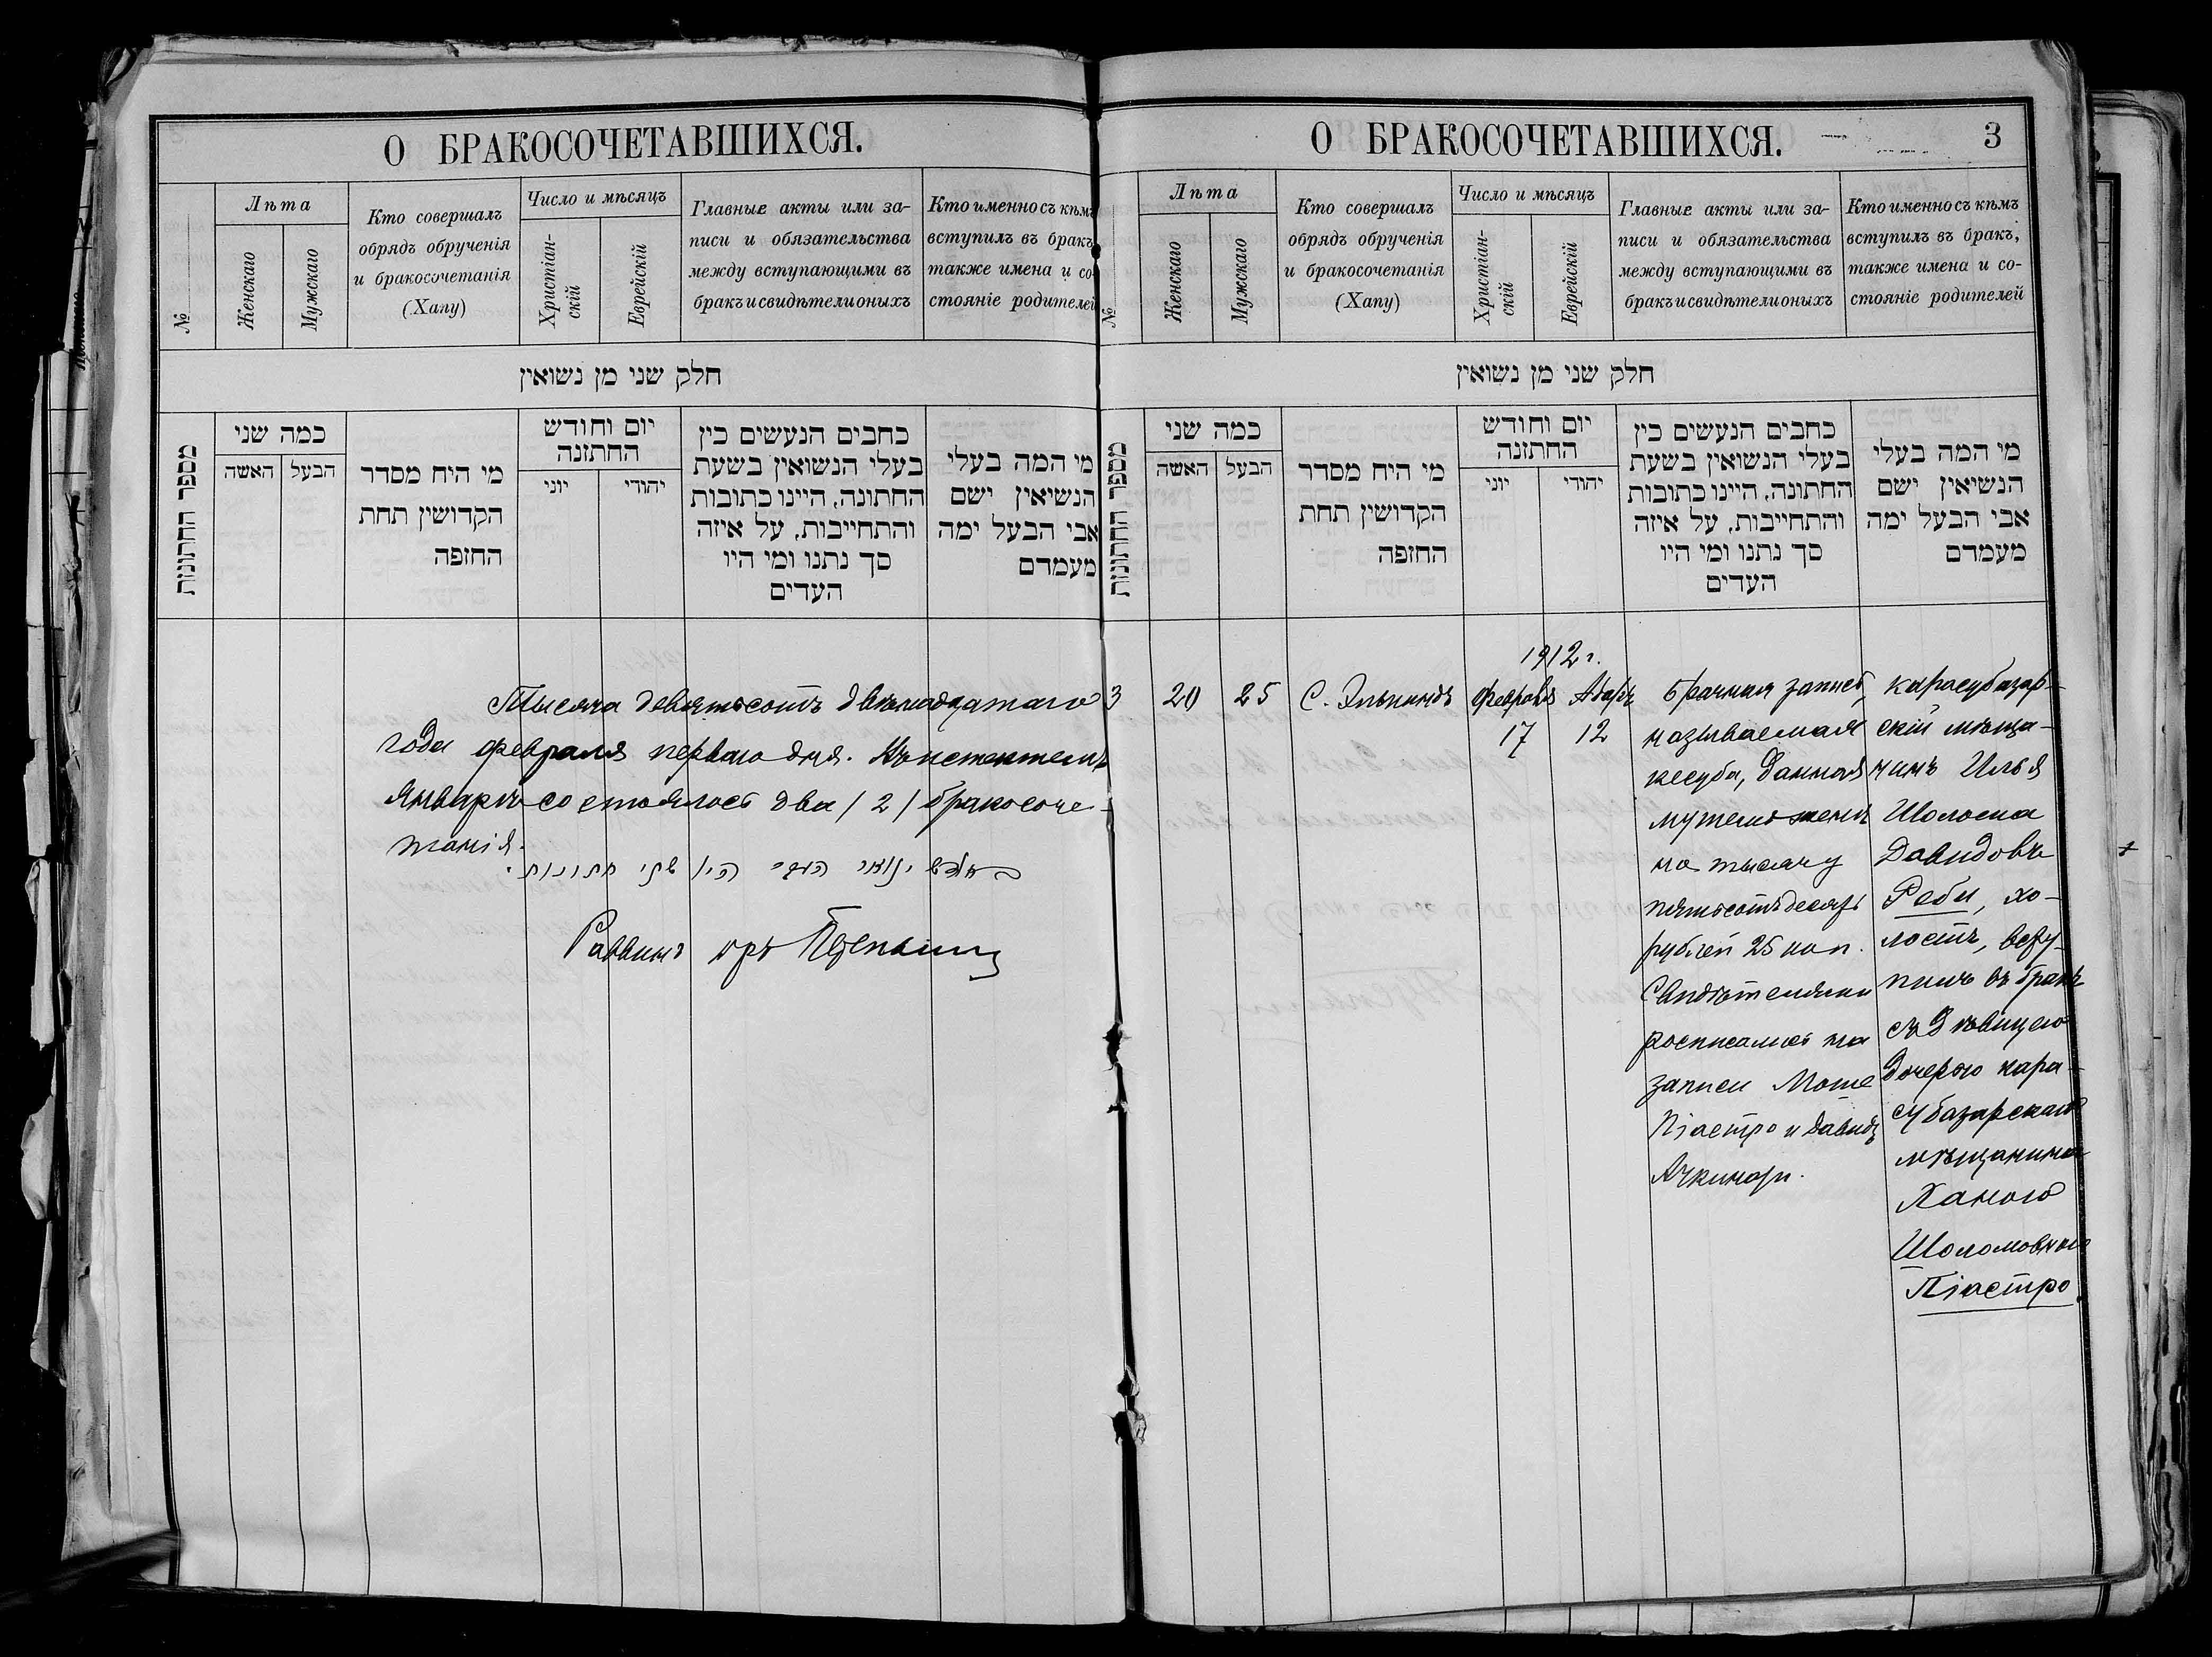 О БРАКОСОЧЕТАВШИХСЯ.
№
Лѣта
Женскаго
Мужскаго
Кто совершалъ
обрядъ обрученія
и бракосочетанія
(Хапу)
Число и мѣсяцъ
Христіан-
скій
Еврейскій
Главные акты или за-
писи и обязательства
между вступающими въ
бракъ и свидѣтели оныхъ
Кто именно съ кѣмъ
вступилъ въ бракъ
также имена и со-
стояніе родителей
חלק שני מן נשואין
מספר החתונות
כמה שני
האשה
הבעל
מי היח מסדר
הקדושין תחת
החופה
יום וחודש
החתונה
יוני
יהודי
כחבים הנעשים כין
בעלי הנשואין בשעת
החתונה, היינו כתובות
והתחייבות, על איזה
סך נתנו ומי היו
העדים
מי המה בעלי
הנשיאין ישם
אבי הבעל ימה
מעמדם
Тысяча девятьсотъ двѣнадцатаго
года февраля перваго дня. Въ истекшемъ
Январѣ состоялось два /2/ бракосоче-
танія.
בחדש ינואר היו שתי חתונות.
Раввинъ
О БРАКОСОЧЕТАВШИХСЯ.
3
№
Лѣта
Женскаго
Мужскаго
Кто совершалъ
обрядъ обрученія
и бракосочетанія
(Хапу)
Число и мѣсяцъ
Христіан-
скій
Еврейскій
Главные акты или за-
писи и обязательства
между вступающими въ
бракъ и свидѣтели оныхъ
Кто именно съ кѣмъ
вступилъ въ бракъ,
также имена и со-
стояніе родителей
חלק שני מן נשואין
מספר החתונות
כמה שני
האשה
הבעל
מי היח מסדר
הקדושין תחת
החופה
יום וחודש
החתונה
יוני
יהודי
כחבים הנעשים כין
בעלי הנשואין בשעת
החתונה, היינו כתובות
והתחייבות, על איזה
סך נתנו ומי היו
העדים
מי המה בעלי
הנשיאין ישם
אבי הבעל ימה
מעמדם
3
20
25
С. Элькиндъ
1912 г.
Февраля
17
Адаръ
12
Брачная запись,
называемая
кесуба, данная
мужемъ женѣ
на тысячу
пятьсотъ десять
рублей 25 коп.
Свидѣтелями
росписались на
записи Моше
Піастро и Давидъ
Ачкинази.
карасубазар-
скій мѣща-
нинъ Илья
Шолома
Давидовъ
Реби, хо-
лостъ, всту-
пилъ въ бракъ
съ дѣвицею
дочерью кара-
субазарскаго
мѣщанина
Ханою
Шоломовною
Піастро.